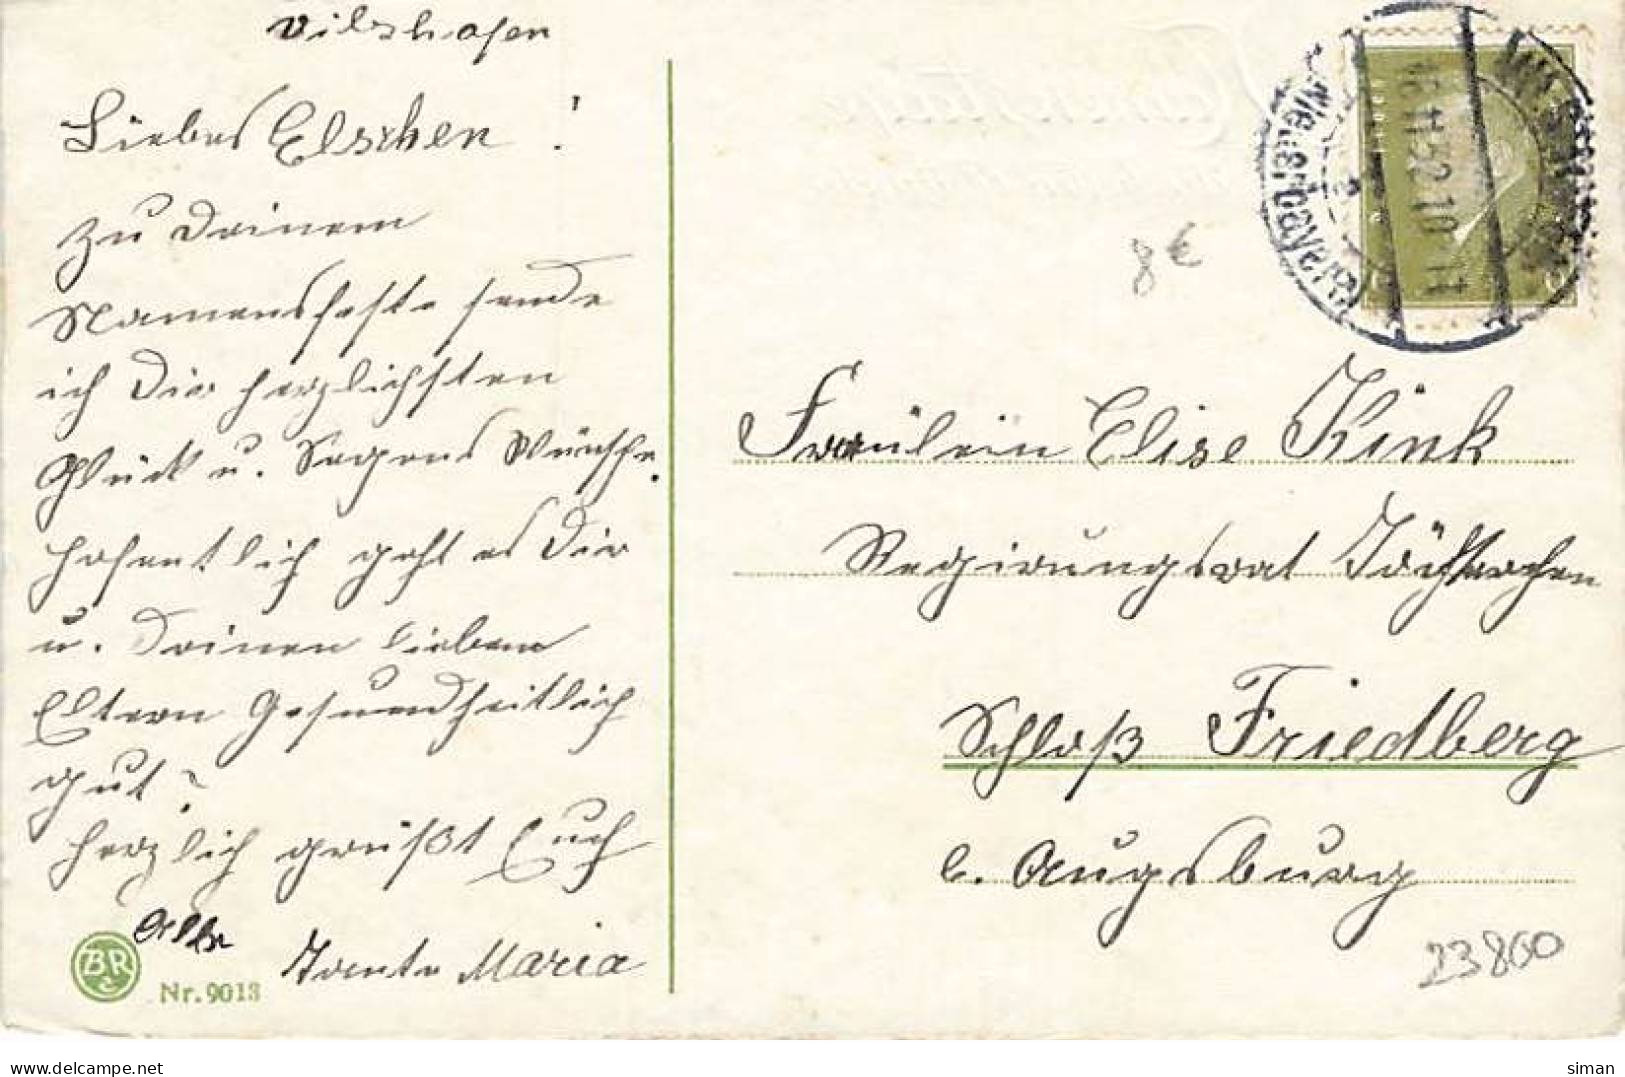 Vilshofen
Liebes Elschen !
zu Deinem
Namensfeste sende
ich Dir herzlichsten
Glück u. Segens Wünsche.
hofentlich geht es Dir
u. Deinen lieben
Eltern Gesundheitlich
gut?
herzlich grüßt Euch
Alle
Tante Maria
BR
Nr. 9013
16.11.32.10-11
(Niederbayern)
8€
Fräulein Elise Kink
Regierungsrat
Schloß Friedberg
b. Augsburg
23800
siman